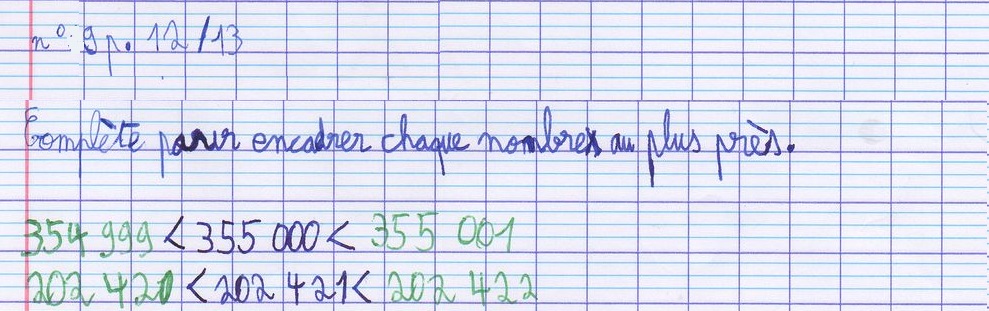 n° 9 p. 12/13
Complète pour encadrer chaque nombre au plus près.
354 999 < 355 000 < 355 001
202 420 < 202 421 < 202 422